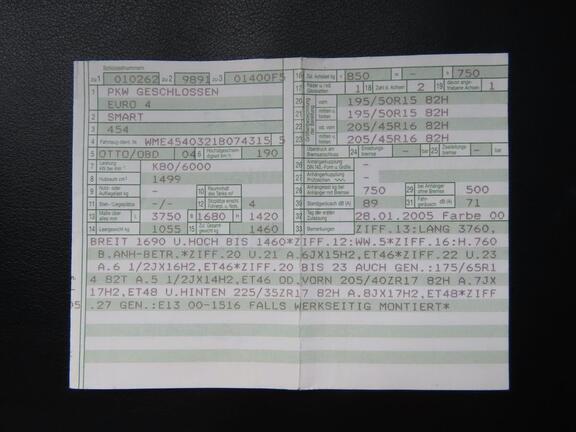 Schlüsselnummern
zu 1 010262 zu 2 9891 zu 3 01400F5
1 PKW GESCHLOSSEN
EURO 4
2 SMART
3 454
4 Fahrzeug-Ident.-Nr. WME4540321B074315 5
5 OTTO/OBD 04 6 Höchstgeschwindigkeit km/h 190
7 Leistung kW bei min⁻¹ K80/6000
8 Hubraum cm³ 1499
9 Nutz- oder Aufliegelast kg - 10 Rauminhalt des Tanks m³ -
11 Steh-/Liegeplätze -/- 12 Sitzplätze einschl. Führerpl. u. Nots. 4
13 Maße über alles mm L 3750 B 1680 H 1420
14 Leergewicht kg 1055 15 Zul. Gesamtgewicht kg 1460
16 Zul. Achslast kg v 850 m - h 750
17 Räder u./od. Gleisketten 1 18 Zahl d. Achsen 2 19 davon angetriebene Achsen 1
20 vorn 195/50R15 82H
21 mitten u. hinten 195/50R15 82H
22 od. vorn 205/45R16 82H
23 mitten u. hinten 205/45R16 82H
Überdruck am Bremsanschluss 24 Einleitungsbremse - bar 25 Zweileitungsbremse - bar
26 Anhängerkupplung DIN 740.. Form u. Größe -
27 Anhängerkupplung Prüfzeichen -
28 Anhängelast kg bei Anhänger mit Bremse 750 29 bei Anhänger ohne Bremse 500
30 Standgeräusch dB (A) 89 31 Fahrgeräusch dB (A) 71
32 Tag der ersten Zulassung 28.01.2005 Farbe 00
33 Bemerkungen ZIFF.13:LANG 3760,
BREIT 1690 U.HOCH BIS 1460*ZIFF.12:WW.5*ZIFF.16:H.760
B.ANH-BETR.*ZIFF.20 U.21 A.6JX15H2,ET46*ZIFF.22 U.23
A.6 1/2JX16H2,ET46*ZIFF.20 BIS 23 AUCH GEN.:175/65R1
4 82T A.5 1/2JX14H2,ET46 OD.VORN 205/40ZR17 82H A.7JX
17H2,ET48 U.HINTEN 225/35ZR17 82H A.8JX17H2,ET48*ZIFF
.27 GEN.:E13 00-1516 FALLS WERKSEITIG MONTIERT*